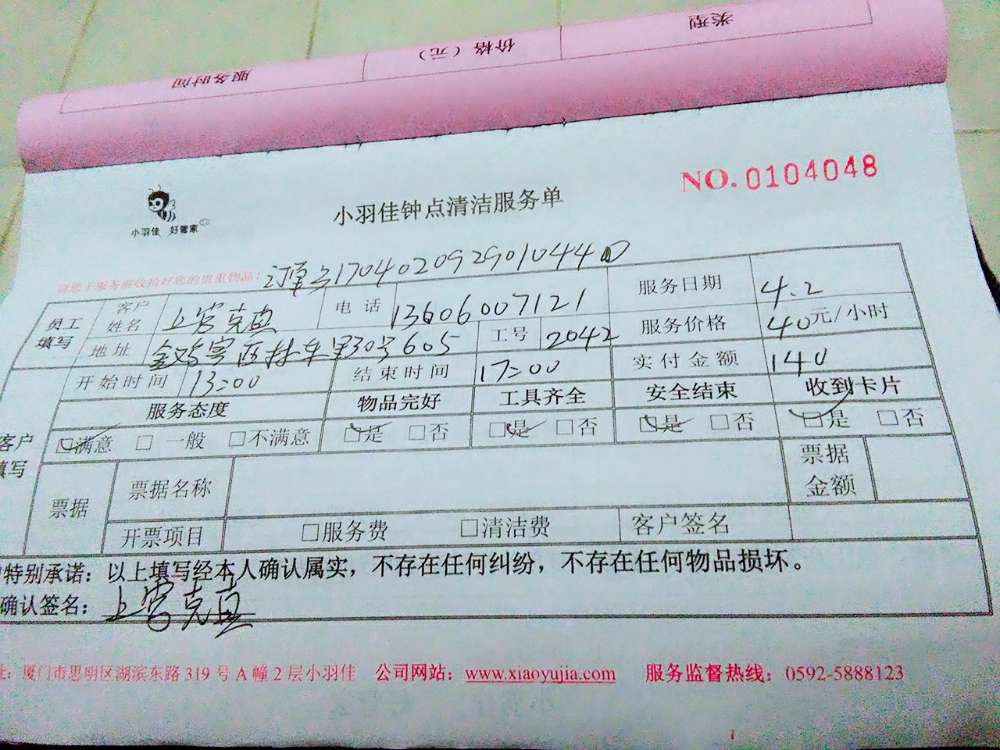 类型 价格（元） 服务时间
NO.0104048
小羽佳 好管家
小羽佳钟点清洁服务单
请您于服务前收拾好您的贵重物品：订单号17040209290104440
员工填写 客户姓名 上官克直 电话 13606007121 服务日期 4.2
地址 金鸡寨西林东里30号605 工号 2042 服务价格 40元/小时
开始时间 13:00 结束时间 17:00 实付金额 140
客户填写 服务态度 物品完好 工具齐全 安全结束 收到卡片
☑满意 □一般 □不满意 ☑是 □否 ☑是 □否 ☑是 □否 ☑是 □否
票据 票据名称 票据金额
开票项目 □服务费 □清洁费 客户签名
特别承诺：以上填写经本人确认属实，不存在任何纠纷，不存在任何物品损坏。
确认签名：上官克直
址：厦门市思明区湖滨东路319号A幢2层小羽佳 公司网站：www.xiaoyujia.com 服务监督热线：0592-5888123